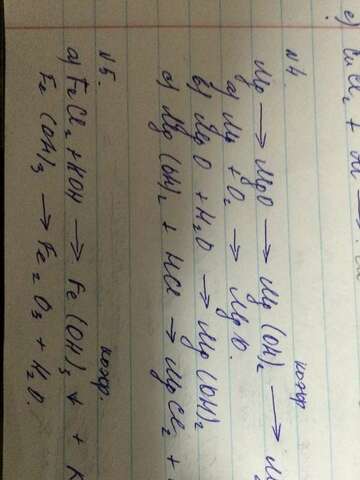 e) CuCl₂ +
N4. коэф
Mg → MgO → Mg(OH)₂ →
а) Mg + O₂ → MgO.
б) MgO + H₂O → Mg(OH)₂
в) Mg(OH)₂ + HCl → MgCl₂ +
N5. коэф.
а) FeCl₂ + KOH → Fe(OH)₃ ↓ + K
Fe(OH)₃ → Fe₂O₃ + H₂O.